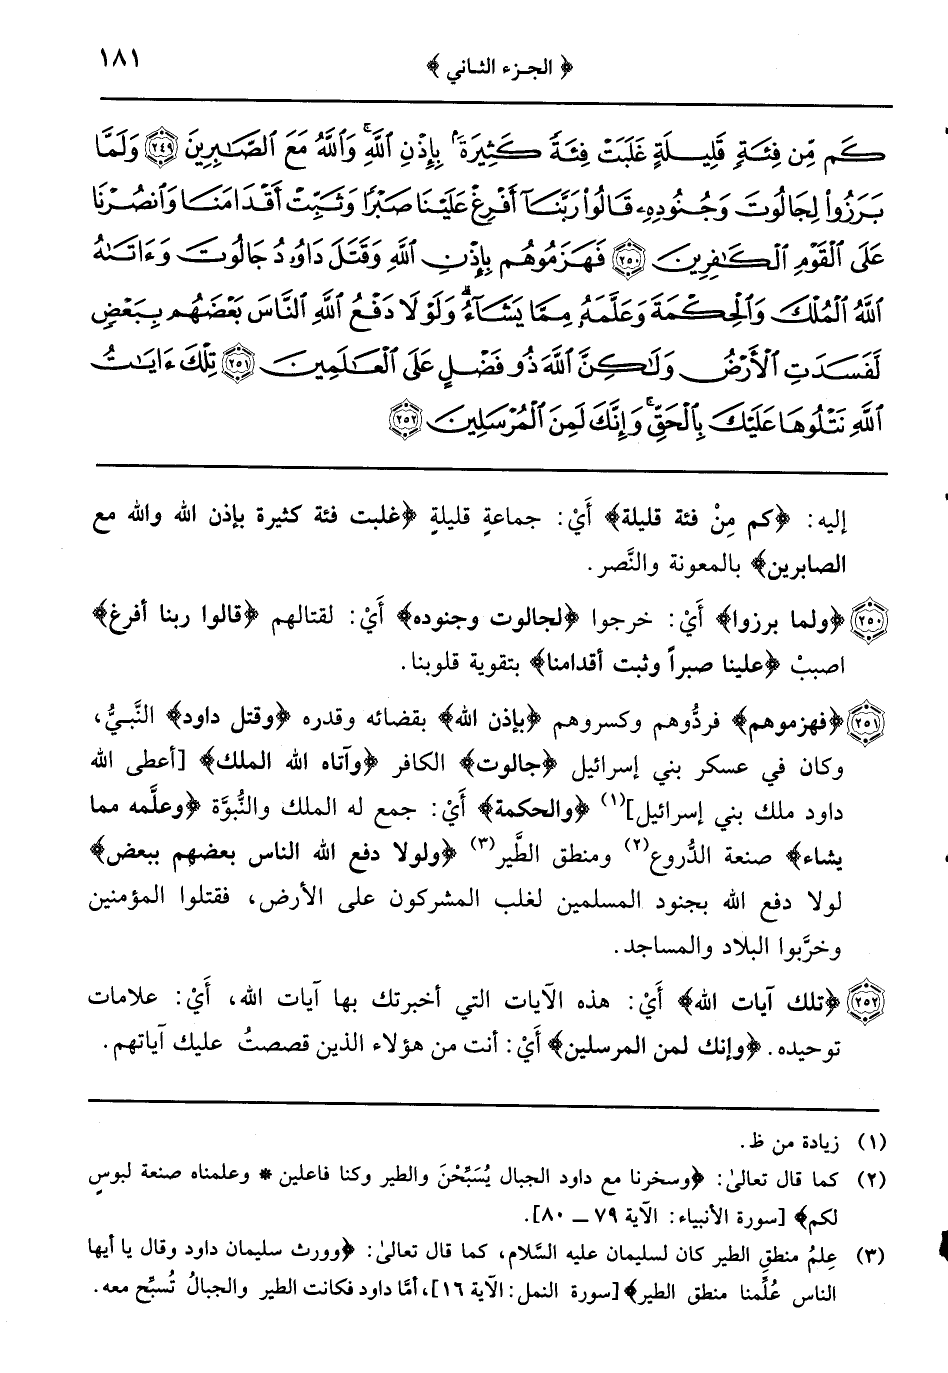 ﴿ الجـزء الثـاني ﴾ ١٨١
كَم مِّن فِئَةٍ قَلِيلَةٍ غَلَبَتْ فِئَةً كَثِيرَةً بِإِذْنِ ٱللَّهِ وَٱللَّهُ مَعَ ٱلصَّٰبِرِينَ ٢٤٩ وَلَمَّا
بَرَزُوا۟ لِجَالُوتَ وَجُنُودِهِۦ قَالُوا۟ رَبَّنَآ أَفْرِغْ عَلَيْنَا صَبْرًا وَثَبِّتْ أَقْدَامَنَا وَٱنصُرْنَا
عَلَى ٱلْقَوْمِ ٱلْكَٰفِرِينَ ٢٥٠ فَهَزَمُوهُم بِإِذْنِ ٱللَّهِ وَقَتَلَ دَاوُۥدُ جَالُوتَ وَءَاتَىٰهُ
ٱللَّهُ ٱلْمُلْكَ وَٱلْحِكْمَةَ وَعَلَّمَهُۥ مِمَّا يَشَآءُ وَلَوْلَا دَفْعُ ٱللَّهِ ٱلنَّاسَ بَعْضَهُم بِبَعْضٍ
لَّفَسَدَتِ ٱلْأَرْضُ وَلَٰكِنَّ ٱللَّهَ ذُو فَضْلٍ عَلَى ٱلْعَٰلَمِينَ ٢٥١ تِلْكَ ءَايَٰتُ
ٱللَّهِ نَتْلُوهَا عَلَيْكَ بِٱلْحَقِّ وَإِنَّكَ لَمِنَ ٱلْمُرْسَلِينَ ٢٥٢
إليه: ﴿كم مِنْ فئة قليلة﴾ أَيْ: جماعةٍ قليلةٍ ﴿غلبت فئة كثيرة بإذن الله والله مع
الصابرين﴾ بالمعونة والنَّصر.
٢٥٠ ﴿ولما برزوا﴾ أَيْ: خرجوا ﴿لجالوت وجنوده﴾ أَيْ: لقتالهم ﴿قالوا ربنا أفرغ﴾
اصببْ ﴿علينا صبراً وثبت أقدامنا﴾ بتقوية قلوبنا.
٢٥١ ﴿فهزموهم﴾ فردُّوهم وكسروهم ﴿بإذن الله﴾ بقضائه وقدره ﴿وقتل داود﴾ النَّبيُّ،
وكان في عسكر بني إسرائيل ﴿جالوت﴾ الكافر ﴿وآتاه الله الملك﴾ [أعطى الله
داود ملك بني إسرائيل](١) ﴿والحكمة﴾ أَيْ: جمع له الملك والنُّبوَّة ﴿وعلَّمه مما
يشاء﴾ صنعة الدُّروع(٢) ومنطق الطَّير(٣) ﴿ولولا دفع الله الناس بعضهم ببعض﴾
لولا دفع الله بجنود المسلمين لغلب المشركون على الأرض، فقتلوا المؤمنين
وخرَّبوا البلاد والمساجد.
٢٥٢ ﴿تلك آيات الله﴾ أَيْ: هذه الآيات التي أخبرتك بها آيات الله، أَيْ: علامات
توحيده. ﴿وإنك لمن المرسلين﴾ أَيْ: أنت من هؤلاء الذين قصصتُ عليك آياتهم.
(١) زيادة من ظ.
(٢) كما قال تعالىٰ: ﴿وسخرنا مع داود الجبال يُسَبِّحْنَ والطير وكنا فاعلين * وعلمناه صنعة لبوسٍ
لكم﴾ [سورة الأنبياء: الآية ٧٩ ــ ٨٠].
(٣) عِلمُ منطقِ الطير كان لسليمان عليه السَّلام، كما قال تعالىٰ: ﴿وورث سليمان داود وقال يا أيها
الناس عُلِّمنا منطق الطير﴾ [سورة النمل: الآية ١٦]، أمَّا داود فكانت الطير والجبالُ تُسبِّح معه.